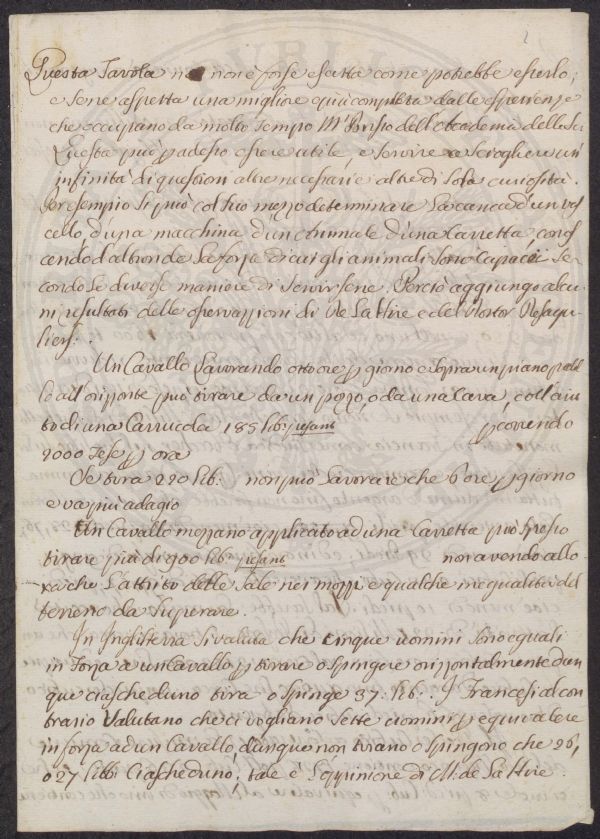 2
Questa Tavola non è forse esatta come potrebbe esserlo;
e se ne aspetta una migliore e più completa dalle esperienze
che occupano da molto tempo Mr dell'Accademia delle Sc:
Questa può p adesso essere utile, e servire a sciogliere un
infinità di questioni altre necessarie altre di sola curiosità.
Per esempio si può col suo mezzo determinare la carica d'un vas
cello d'una macchina d'un d'una Carretta, conos
cendo d'altronde la forza di cui gli animali sono capaci se
condo le diverse maniere di servirsene. Perciò aggiungo alcu
ni resultati delle osservazzioni di De La Hire e del Dottor Desagu
liers:.
Un Cavallo lavorando otto ore p giorno e sopra un piano paral
lo all'orizzonte può tirare da un pozzo, o da una Cava, coll'aiu
to di una Carrucola 185 lib: pesant p correndo
2000 Tese p ora
Se tira 220 lib: non può lavorare che 6 ore p giorno
e va più adagio
Un Cavallo mezzano applicato ad una Carretta può spesso
tirare più di 900 lib: pesant non avendo allo
ra che l'attrito delle Sale nei mozzi e qualche inegualità del
terreno da superare.
In Inghilterra si valuta che cinque uomini sono eguali
in forza a un Cavallo p tirare o spingere orizzontalmente dun
que ciascheduno tira o spinge 37: lib:. I Francesi al con
trario valutano che ci vogliano sette uomini p equivalere
in forza ad un Cavallo dunque non tirano o spingono che 26,
o 27 libb: Ciascheduno, tale è l'oppinione di M. de La Hire.